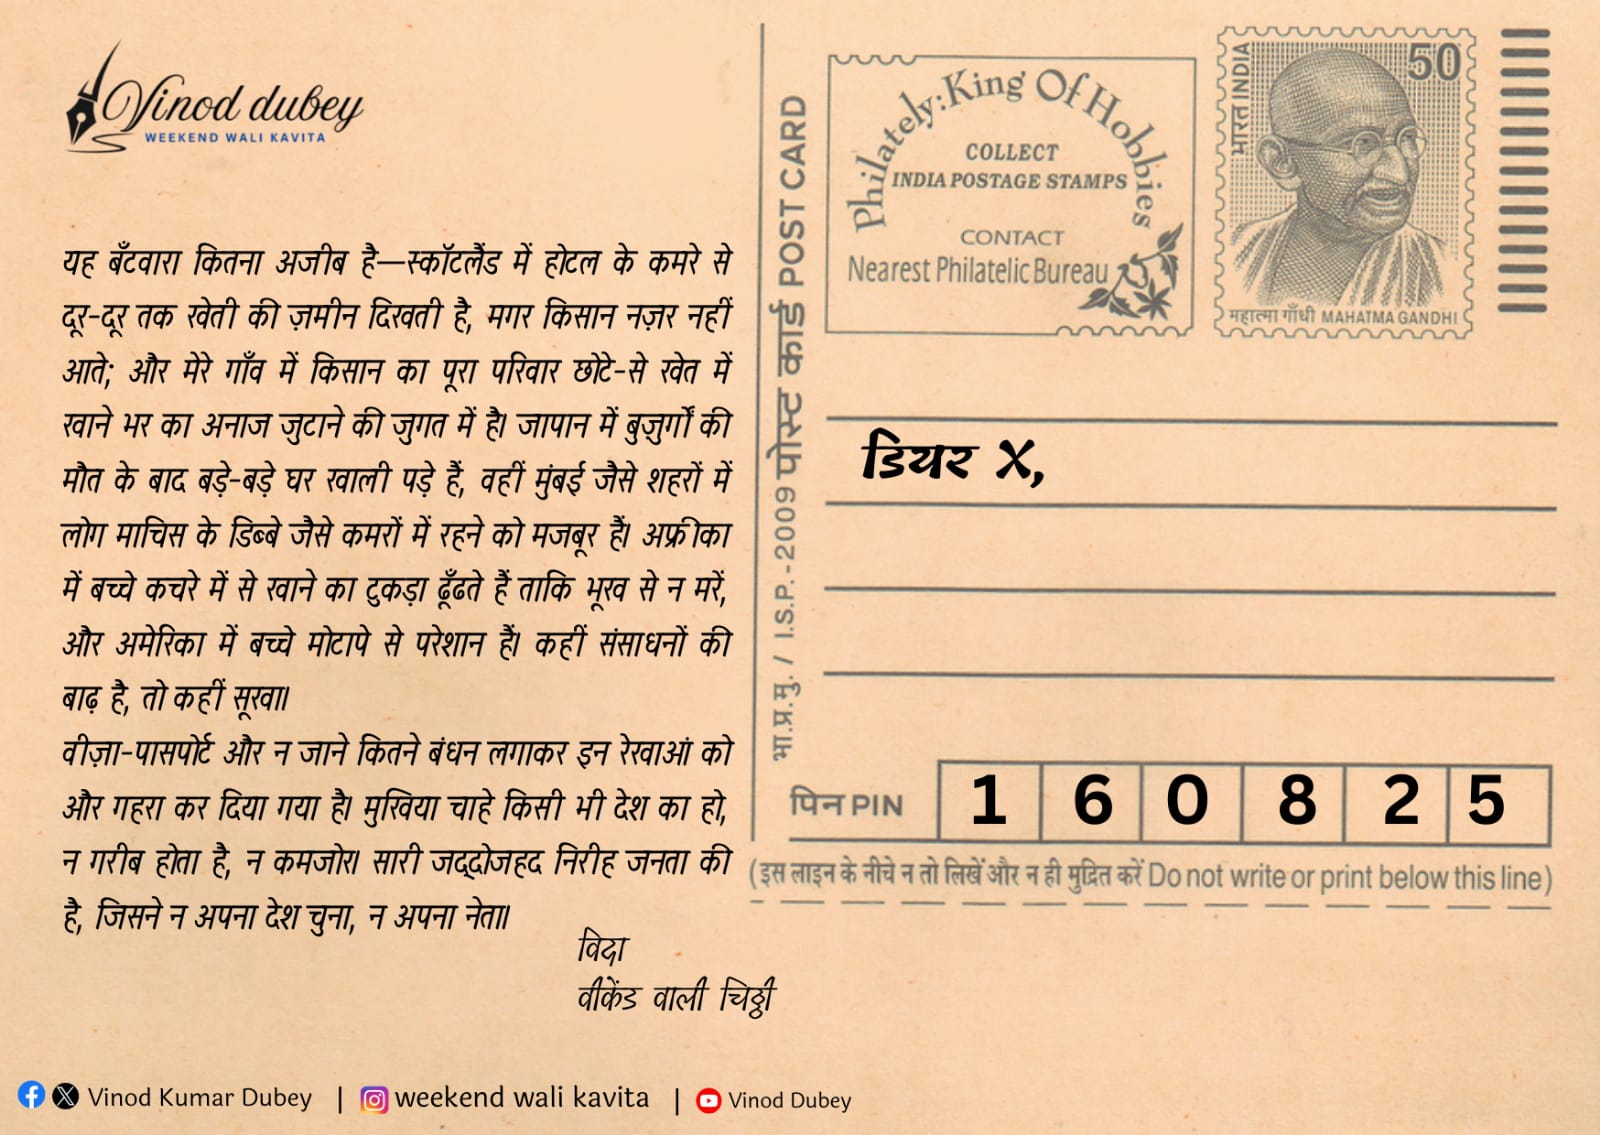 Vinod dubey
WEEKEND WALI KAVITA
यह बँटवारा कितना अजीब है—स्कॉटलैंड में होटल के कमरे से
दूर-दूर तक खेती की ज़मीन दिखती है, मगर किसान नज़र नहीं
आते; और मेरे गाँव में किसान का पूरा परिवार छोटे-से खेत में
खाने भर का अनाज जुटाने की जुगत में है। जापान में बुज़ुर्गों की
मौत के बाद बड़े-बड़े घर खाली पड़े हैं, वहीं मुंबई जैसे शहरों में
लोग माचिस के डिब्बे जैसे कमरों में रहने को मजबूर हैं। अफ्रीका
में बच्चे कचरे में से खाने का टुकड़ा ढूँढते हैं ताकि भूख से न मरें,
और अमेरिका में बच्चे मोटापे से परेशान हैं। कहीं संसाधनों की
बाढ़ है, तो कहीं सूखा।
वीज़ा-पासपोर्ट और न जाने कितने बंधन लगाकर इन रेखाओं को
और गहरा कर दिया गया है। मुखिया चाहे किसी भी देश का हो,
न गरीब होता है, न कमजोर। सारी जद्दोजहद निरीह जनता की
है, जिसने न अपना देश चुना, न अपना नेता।
विदा
वीकेंड वाली चिठ्ठी
भा.प्र.मु. / I.S.P.-2009 पोस्ट कार्ड POST CARD
Philately: King Of Hobbies
COLLECT
INDIA POSTAGE STAMPS
CONTACT
Nearest Philatelic Bureau
भारत INDIA
50
महात्मा गाँधी MAHATMA GANDHI
डियर X,
पिन PIN 1 6 0 8 2 5
(इस लाइन के नीचे न तो लिखें और न ही मुद्रित करें Do not write or print below this line)
Vinod Kumar Dubey | weekend wali kavita | Vinod Dubey